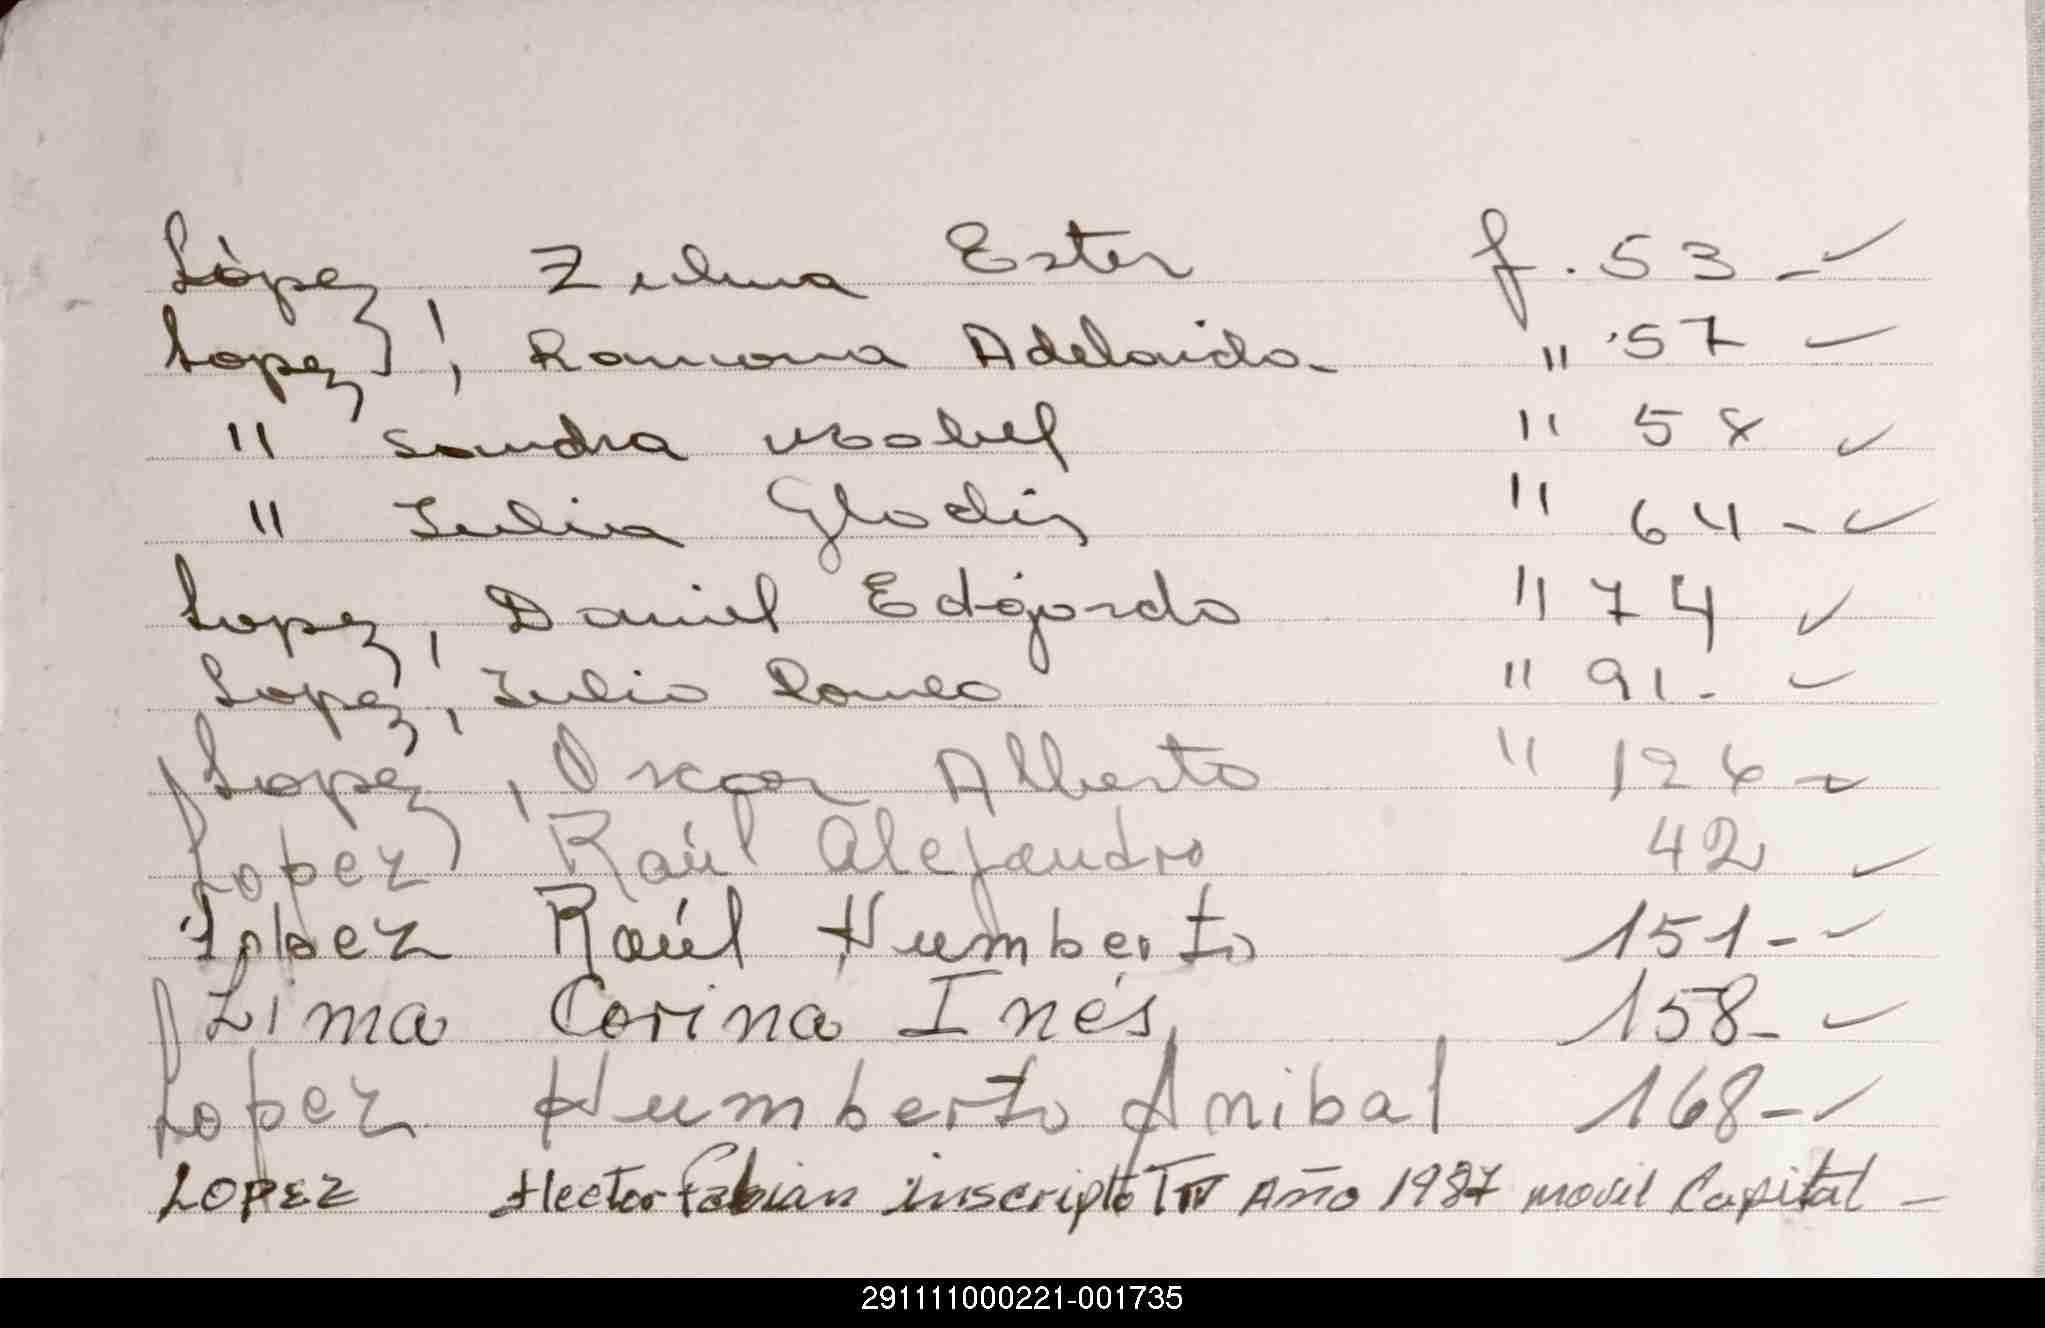 López, Zulma Ester f. 53 -✓
Lopez, Ramona Adelaida - " 57 ✓
" Sandra Isabel " 58 ✓
" Julia Gladis " 64 - ✓
Lopez, Daniel Edgardo " 74 ✓
Lopez, Julio Romeo " 91. ✓
Lopez, Oscar Alberto " 126 ✓
Lopez Raúl Alejandro 42 ✓
Lopez Raúl Humberto 151 - ✓
Lima Corina Inés 158 - ✓
Lopez Humberto Anibal 168 - ✓
LOPEZ Hector Fabian inscripto T IV Año 1987 movil Capital -
291111000221-001735